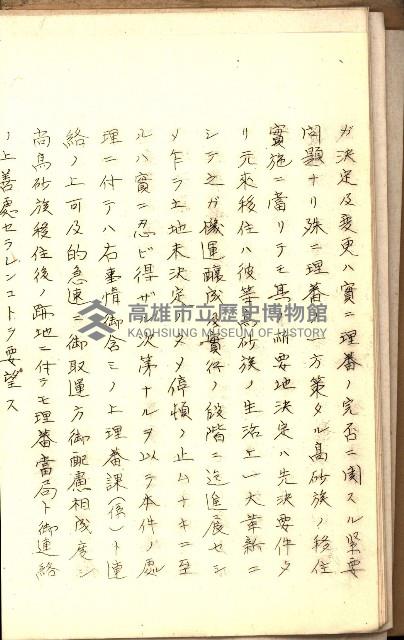 ガ決定及変更ハ實ニ理番ノ完否ニ関スル緊要
問題ナリ殊ニ理蕃ノ一方策タル高砂族ノ移住
實施ニ當リテモ其ノ所要地決定ハ先決要件タ
リ元来移住ハ彼等高砂族ノ生活上一大革新ニ
シテ之ガ機運醸成及實行ノ段階ニ迄進展セシ
メ乍ラ土地未決定ノタメ停頓ノ止ムナキニ至
ルハ實ニ忍ビ得ザル次第ナルヲ以テ本件ノ處
理ニ付テハ右事情御含ミノ上理番課(係)ト連
絡ノ上可及的急速ニ御取運方御配慮相成度シ
尚高砂族移住後ノ跡地ニ付テモ理番當局ト御連絡
ノ上善處セラレンコトヲ要望ス
高雄市立歷史博物館
KAOHSIUNG MUSEUM OF HISTORY